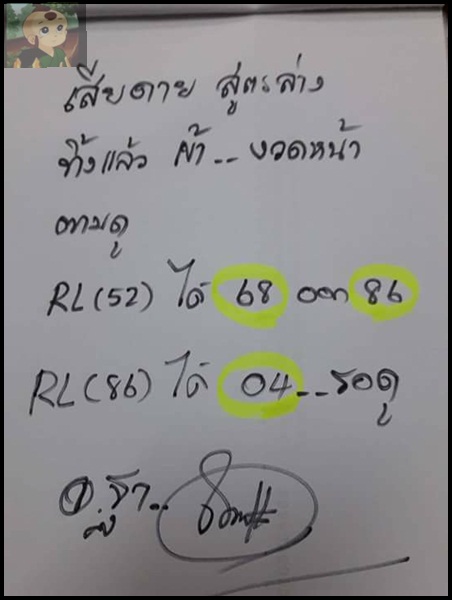 เสียดาย สูตรล่าง
ทิ้งแล้ว ผ้า.. งวดหน้า
ตามดู
RL(52) ได้ 68 ออก 86
RL(86) ได้ 04...รอดู